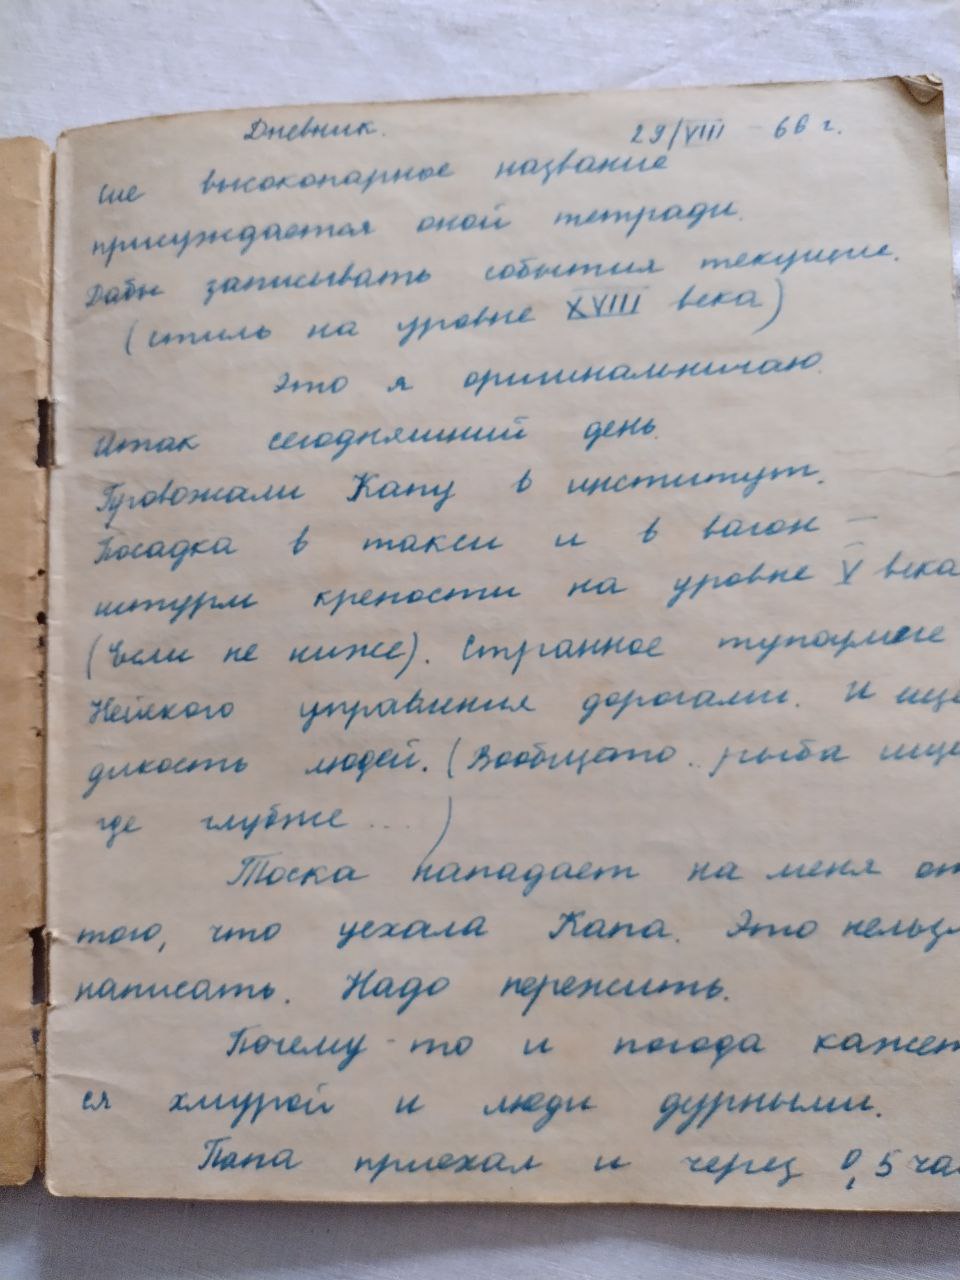 Дневник. 29/VIII - 66 г.
Сие высокопарное название
присуждается оной тетради.
Дабы записывать события текущие.
(стиль на уровне XVIII века)
Это я оригинальничаю.
Итак сегодняшний день.
Провожали Капу в институт.
Посадка в такси и в вагон —
штурм крепости на уровне V века
(Если не ниже). Странное тупоумие
Нейкого управления дорогами. И
дкость людей. (Вообщето.. рыба ище
где глубже ... )
Тоска нападает на меня от
того, что уехала Капа. Это нельзя
написать. Надо пережить.
Почему-то и погода кажет
ся хмурой и люди дурными.
Папа приехал и через 0,5 час